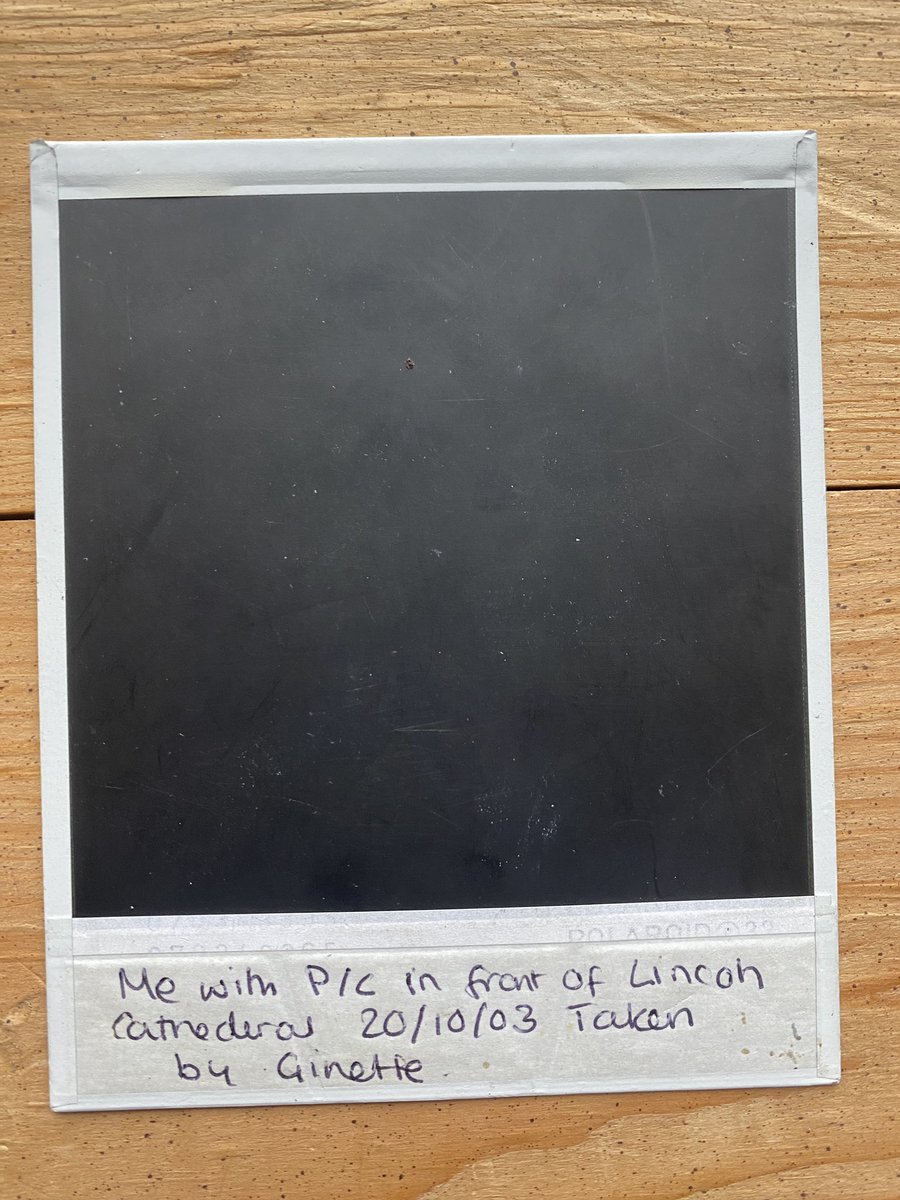 POLAROID
Me with P/C in front of Lincoln
Cathederal 20/10/03 Taken
by Ginette